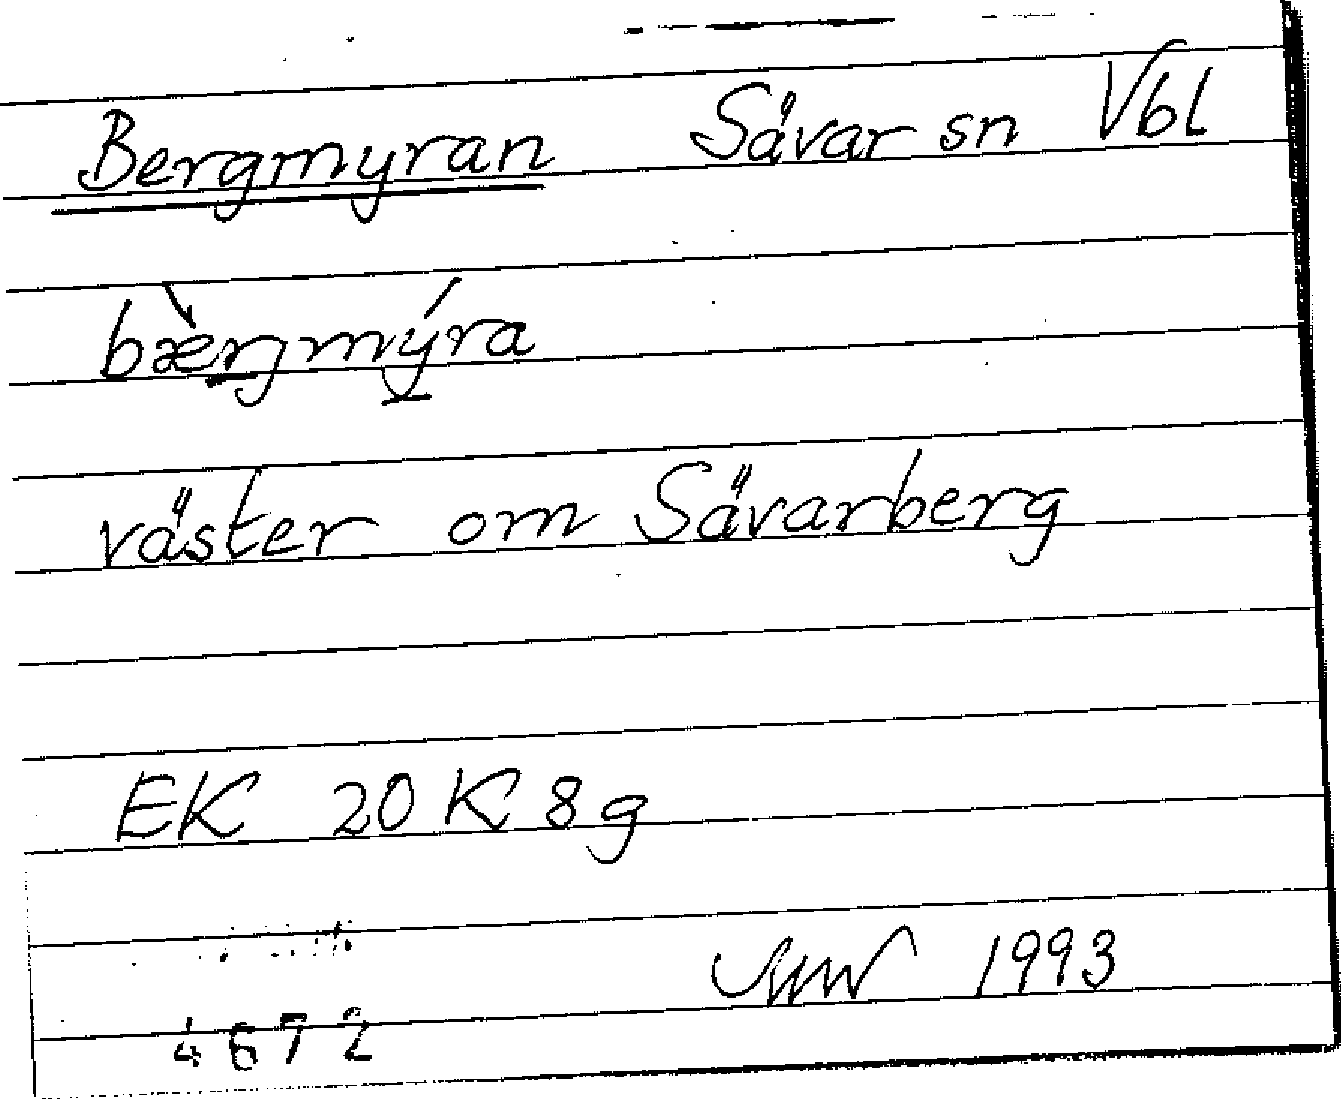 Bergmyran Sävar sn Vbl
bærgmýra
väster om Sävarberg
EK 20 K 8g
1993
4672